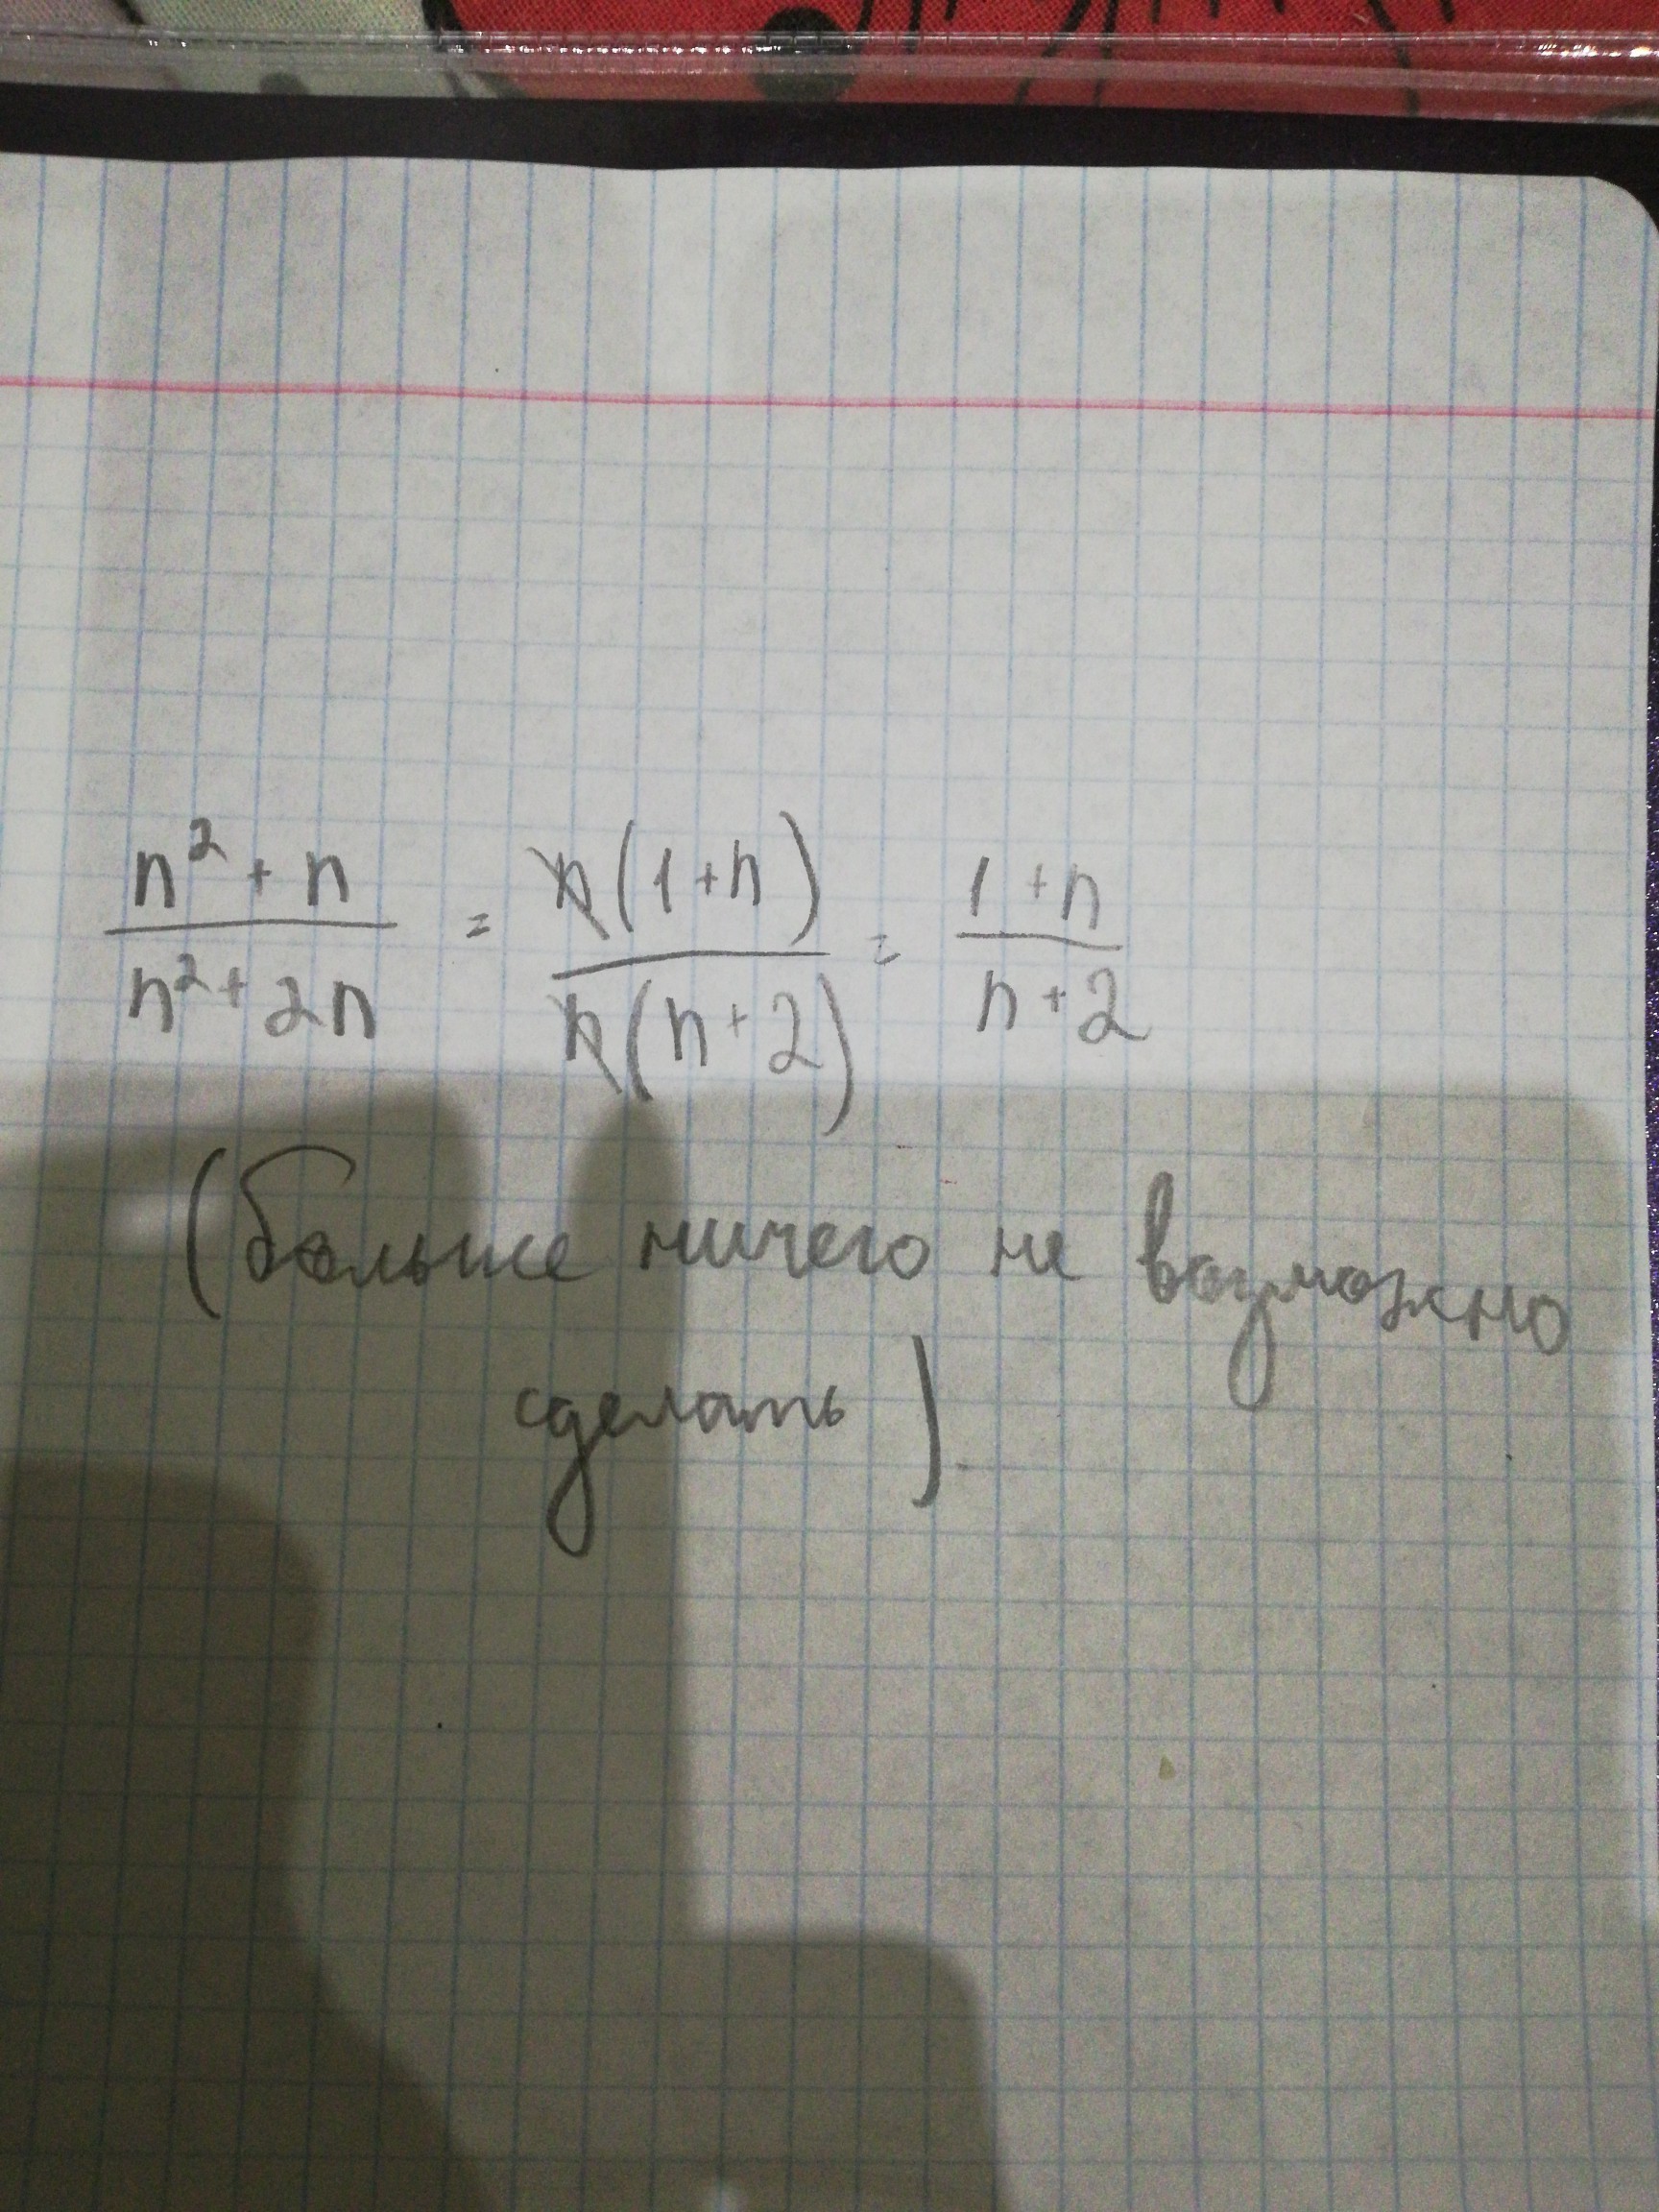 n² + n / n² + 2n = n(1+n) / n(n+2) = 1+n / n+2
(больше ничего не возможно
сделать)